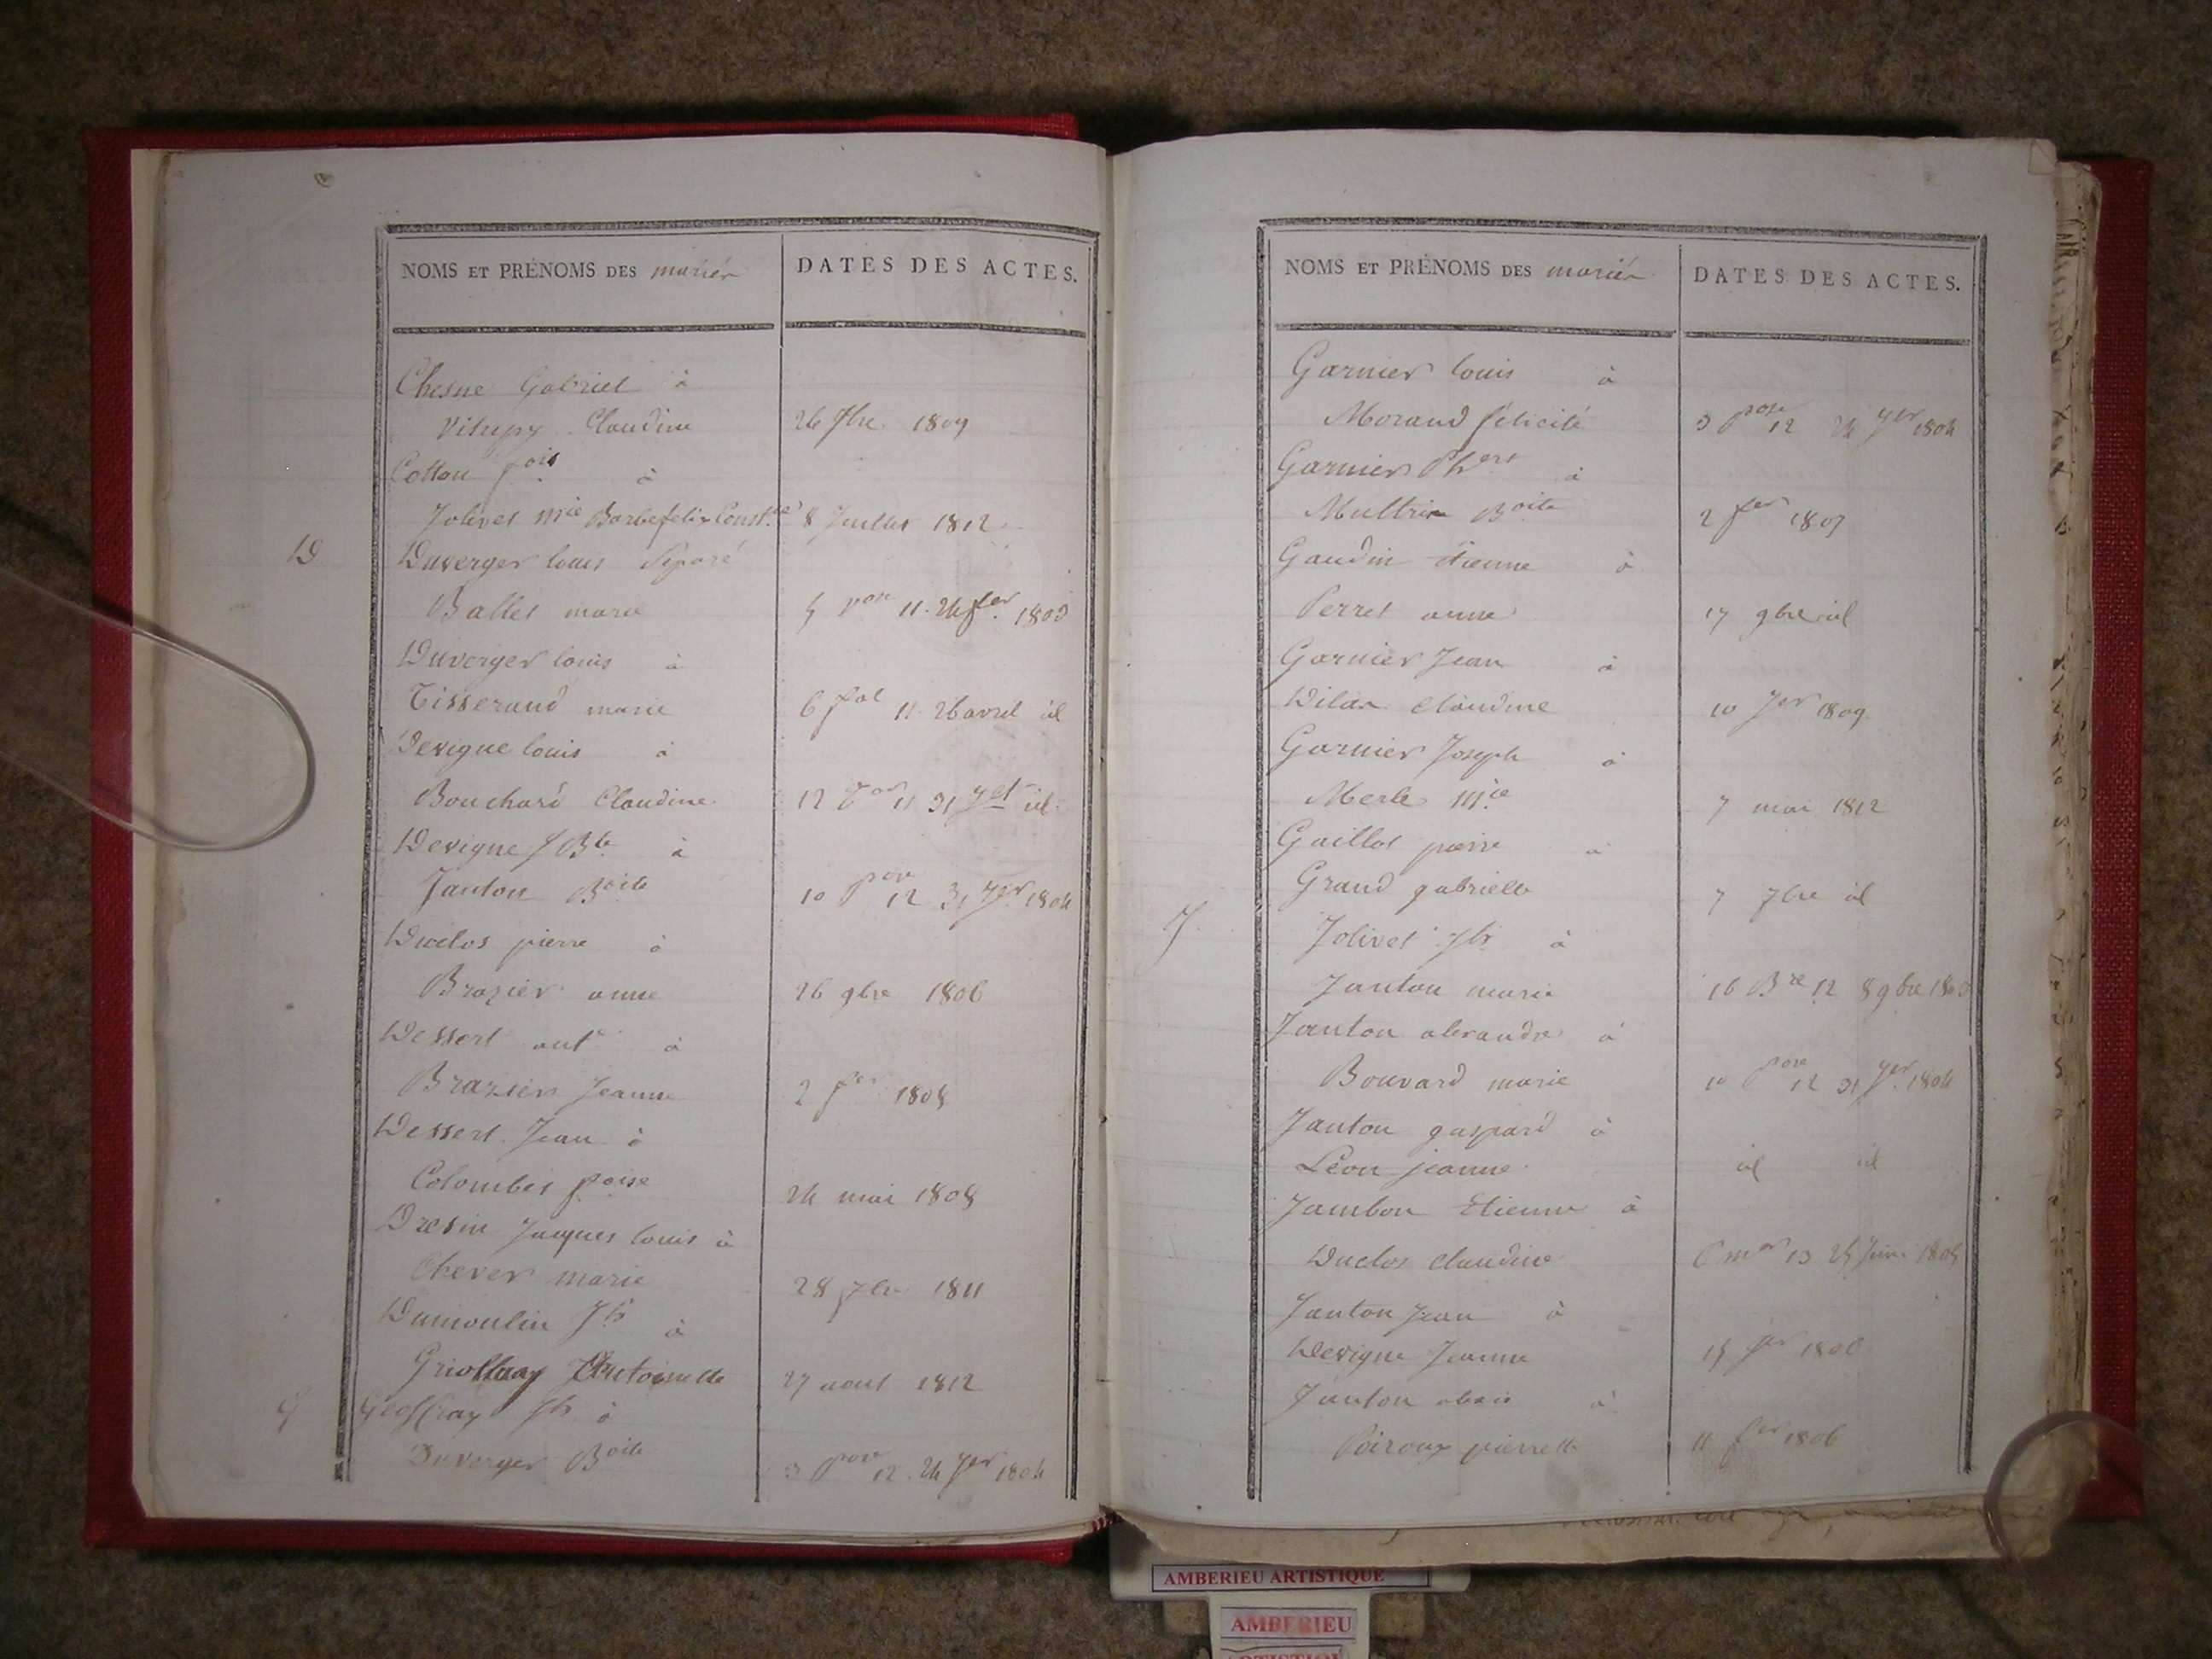 NOMS ET PRÉNOMS DES mariés
DATES DES ACTES.
Chesne Gabriel à
Vitupy Claudine 26 7bre 1809
Cotton fois à
Jolivet mie Barbe felix Const.ce 8 Juillet 1812
D
Duverger louis Séparé
Ballet marie 5 vose 11. 24 fer 1803
Duverger louis à
Tisserand marie 6 fal 11. 26 avril id
Devigne louis à
Bouchard Claudine 12 11 31 id
Devigne J Bte à
Janton Boite 10 12 31 Jer 1804
Duclos pierre à
Brazier anne 26 9bre 1806
Dessert ant à
Brazier Jeanne 2 fer 1808
Dessert Jean à
Colombet foise 24 mai 1808
Dresin Jacques louis à
Chever marie 28 7bre 1811
Dumoulin Jh à
Griottay Antoinette 27 aout 1812
G
Geoffray Jh à
Duverger Boite 3 pose 12. 24 Jer 1804
NOMS ET PRÉNOMS DES mariés
DATES DES ACTES.
Garnier louis à
Morand félicité 3 pose 12 24 Jer 1804
Garnier à
Multrix Boite 2 fer 1807
Gaudin étienne à
Perret anne 17 9bre id
Garnier Jean à
Dilax claudine 10 Jer 1809
Garnier Joseph à
Merle mie 7 mai 1812
Gaillot pierre à
Grand gabrielle 7 7bre id
J
Jolivet Jh à
Janton marie 16 Bre 12 8 9bre
Janton alexandre à
Bouvard marie 10 pose 12 31 Jer 1804
Janton gaspard à
Léon jeanne id id
Jambon Etienne à
Duclos claudine 6 13 25 Juin 1805
Janton Jean à
Devigne Jeanne 15 Jer 1806
Janton à
Poiroux pierrette 11 fer 1806
AMBERIEU ARTISTIQUE
AMBERIEU
ARTISTIQUE